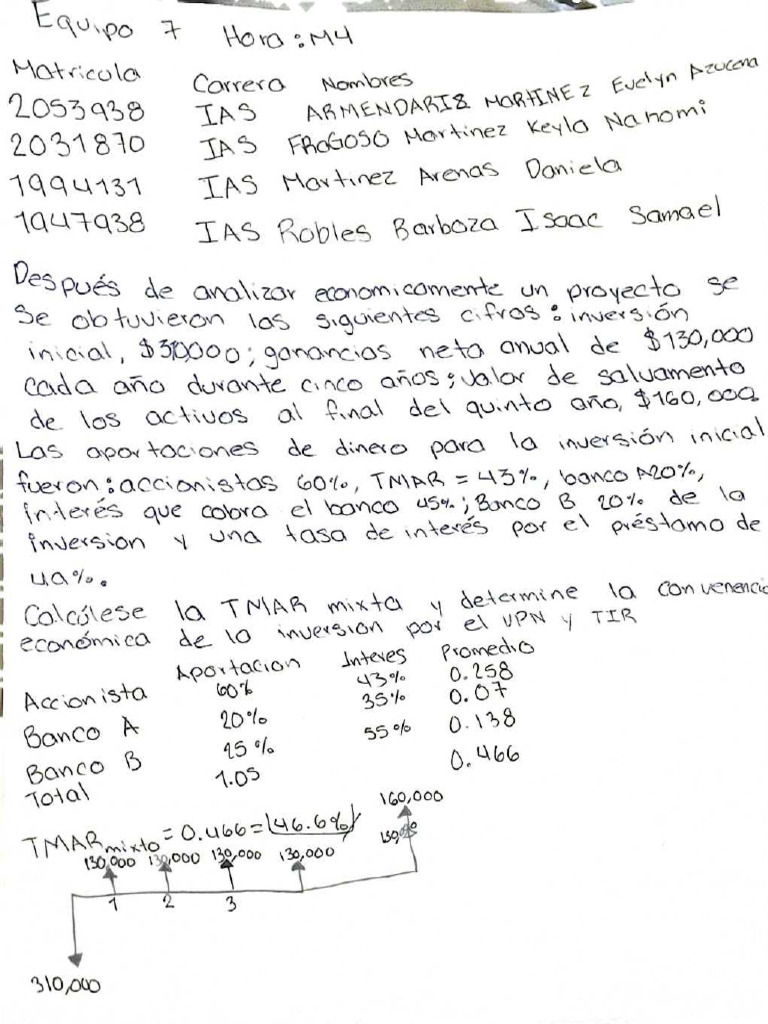 Equipo 7 Hora: M4
Matricula Carrera Nombres
2053938 IAS ARMENDARIZ MARTINEZ Evelyn Azucena
2031870 IAS FRAGOSO Martinez Keyla Nahomi
1994131 IAS Martinez Arenas Daniela
1947938 IAS Robles Barboza Isaac Samael
Después de analizar economicamente un proyecto se
se obtuvieron las siguientes cifras: inversión
inicial, $310000; ganancias neta anual de $130,000
cada año durante cinco años; valor de salvamento
de los activos al final del quinto año, $160,000
Las aportaciones de dinero para la inversión inicial
fueron: accionistas 60%, TMAR = 43%, banco A20%,
interés que cobra el banco 45%; Banco B 20% de la
inversion y una tasa de interés por el préstamo de
4.a%.
Calcúlese la TMAR mixta y determine la convenencia
económica de la inversion por el VPN y TIR
Aportacion Interes Promedio
Accionista 60% 43% 0.258
Banco A 20% 35% 0.07
Banco B 25% 55% 0.138
Total 1.05 0.466
TMAR mixto = 0.466 = 46.6%
160,000
130,000 130,000 130,000 130,000
1 2 3
310,000